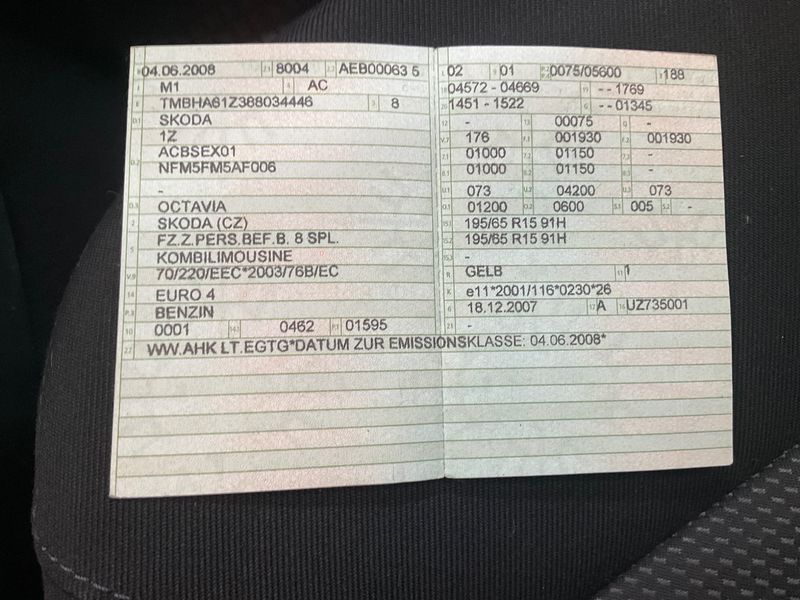 04.06.2008 8004 AEB00063 5
M1 AC
TMBHA61Z388034446 8
SKODA
1Z
ACBSEX01
NFM5FM5AF006
-
OCTAVIA
SKODA (CZ)
FZ.Z.PERS.BEF.B. 8 SPL.
KOMBILIMOUSINE
70/220/EEC*2003/76B/EC
EURO 4
BENZIN
0001 0462 01595
02 01 0075/05600 188
04572 - 04669 - - 1769
1451 - 1522 - - 01345
- 00075 -
176 001930 001930
01000 01150 -
01000 01150 -
073 04200 073
01200 0600 005 -
195/65 R15 91H
195/65 R15 91H
-
GELB 1
e11*2001/116*0230*26
18.12.2007 A UZ735001
-
WW.AHK LT.EGTG*DATUM ZUR EMISSIONSKLASSE: 04.06.2008*